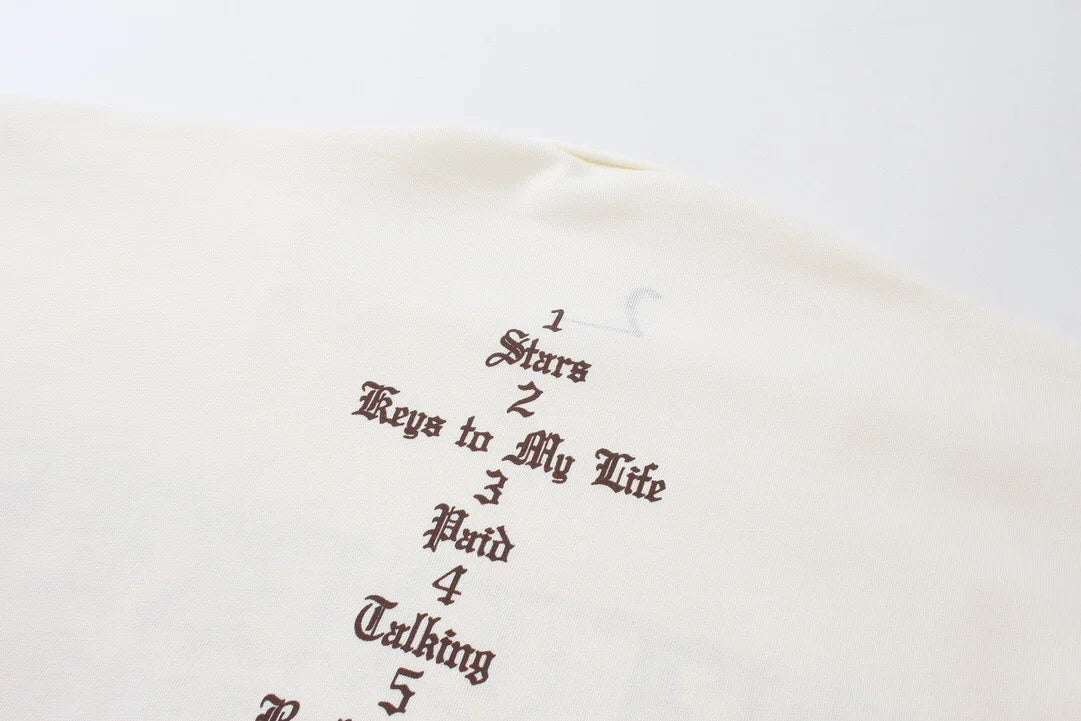 1
Stars
2
Keys to My Life
3
Paid
4
Talking
5